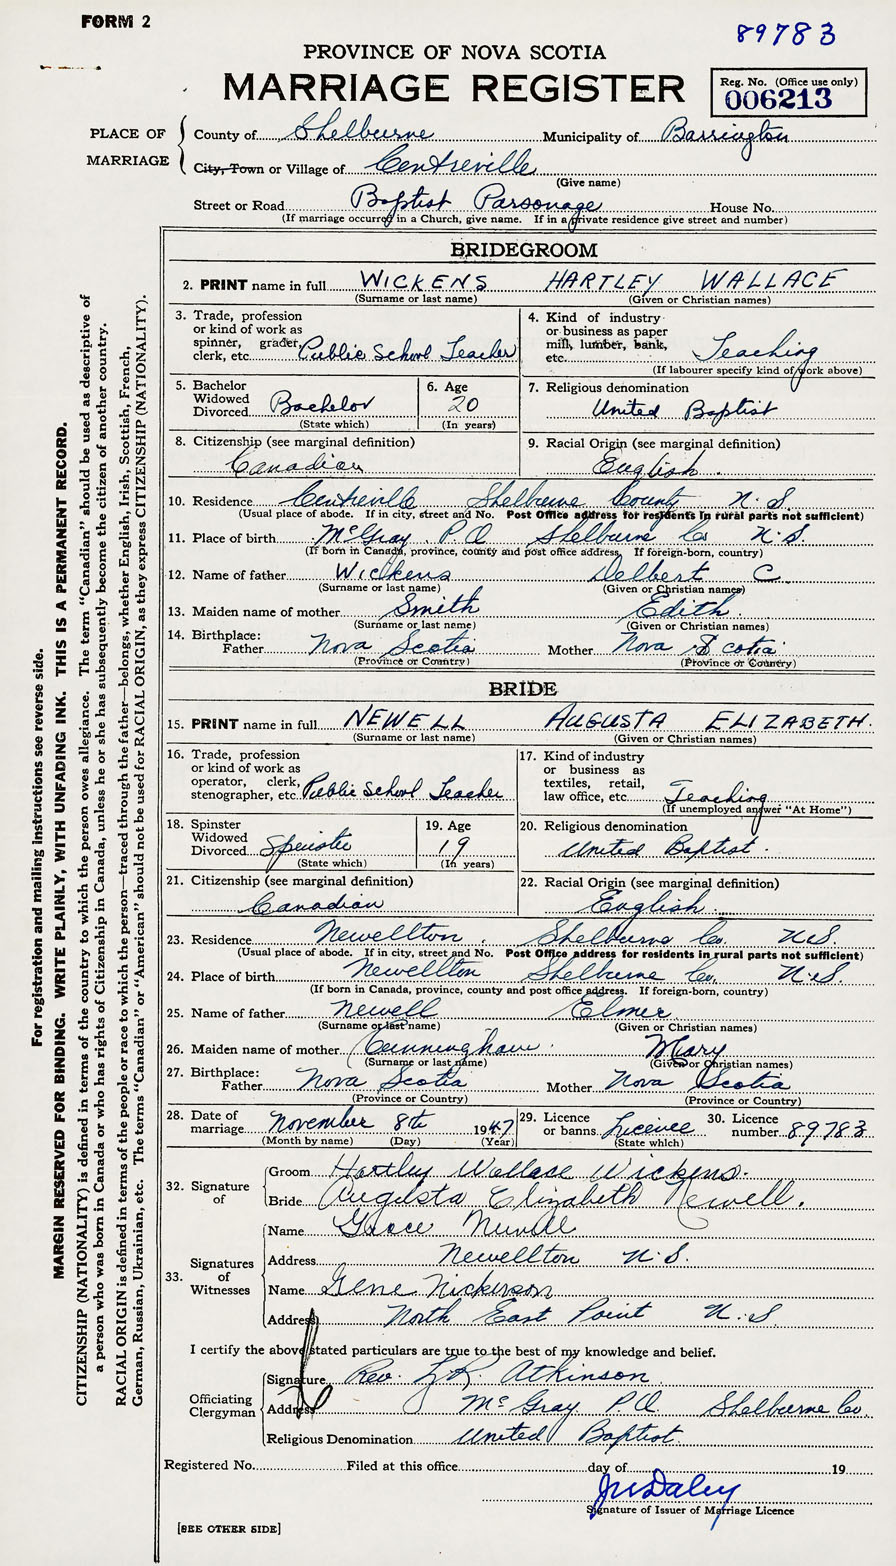 FORM 2
89783
PROVINCE OF NOVA SCOTIA
MARRIAGE REGISTER
Reg. No. (Office use only)
006213
PLACE OF MARRIAGE
County of Shelburne Municipality of Barrington
City, Town or Village of Centreville
(Give name)
Street or Road Baptist Parsonage House No.
(If marriage occurred in a Church, give name. If in a private residence give street and number)
BRIDEGROOM
2. PRINT name in full WICKENS HARTLEY WALLACE
(Surname or last name) (Given or Christian names)
3. Trade, profession or kind of work as spinner, grader, clerk, etc. Public School Teacher
4. Kind of industry or business as paper mill, lumber, bank, etc. Teaching
(If labourer specify kind of work above)
5. Bachelor Widowed Divorced Bachelor
(State which)
6. Age 20
(In years)
7. Religious denomination United Baptist
8. Citizenship (see marginal definition) Canadian
9. Racial Origin (see marginal definition) English.
10. Residence Centreville Shelburne County N. S.
(Usual place of abode. If in city, street and No. Post Office address for residents in rural parts not sufficient)
11. Place of birth McGray P.O. Shelburne Co N.S.
(If born in Canada, province, county and post office address. If foreign-born, country)
12. Name of father Wickens Delbert C.
(Surname or last name) (Given or Christian names)
13. Maiden name of mother Smith Edith.
(Surname or last name) (Given or Christian names)
14. Birthplace: Father Nova Scotia Mother Nova Scotia
(Province or Country) (Province or Country)
BRIDE
15. PRINT name in full NEWELL AUGUSTA ELIZABETH.
(Surname or last name) (Given or Christian names)
16. Trade, profession or kind of work as operator, clerk, stenographer, etc. Public School Teacher
17. Kind of industry or business as textiles, retail, law office, etc. Teaching
(If unemployed answer "At Home")
18. Spinster Widowed Divorced Spinster
(State which)
19. Age 19
(In years)
20. Religious denomination United Baptist.
21. Citizenship (see marginal definition) Canadian
22. Racial Origin (see marginal definition) English.
23. Residence Newellton, Shelburne Co. N.S.
(Usual place of abode. If in city, street and No. Post Office address for residents in rural parts not sufficient)
24. Place of birth Newellton Shelburne Co. N.S.
(If born in Canada, province, county and post office address. If foreign-born, country)
25. Name of father Newell Elmer
(Surname or last name) (Given or Christian names)
26. Maiden name of mother Cunningham. Mary
(Surname or last name) (Given or Christian names)
27. Birthplace: Father Nova Scotia Mother Nova Scotia
(Province or Country) (Province or Country)
28. Date of marriage November 8th 1947
(Month by name) (Day) (Year)
29. Licence or banns Licence
(State which)
30. Licence number 89783
32. Signature of
Groom Hartley Wallace Wickens.
Bride Augusta Elizabeth Newell.
33. Signatures of Witnesses
Name Grace Newell
Address Newellton N.S.
Name Gene Nickerson
Address North East Point N.S.
I certify the above stated particulars are true to the best of my knowledge and belief.
Officiating Clergyman
Signature Rev. L. R. Atkinson
Address McGray P.O. Shelburne Co.
Religious Denomination United Baptist.
Registered No. Filed at this office day of 19
JWDaley
Signature of Issuer of Marriage Licence
[SEE OTHER SIDE]
For registration and mailing instructions see reverse side.
MARGIN RESERVED FOR BINDING. WRITE PLAINLY, WITH UNFADING INK. THIS IS A PERMANENT RECORD.
CITIZENSHIP (NATIONALITY) is defined in terms of the country to which the person owes allegiance. The term "Canadian" should be used as descriptive of
a person who was born in Canada or who has rights of Citizenship in Canada, unless he or she has subsequently become the citizen of another country.
RACIAL ORIGIN is defined in terms of the people or race to which the person—traced through the father—belongs, whether English, Irish, Scottish, French,
German, Russian, Ukrainian, etc. The terms "Canadian" or "American" should not be used for RACIAL ORIGIN, as they express CITIZENSHIP (NATIONALITY).